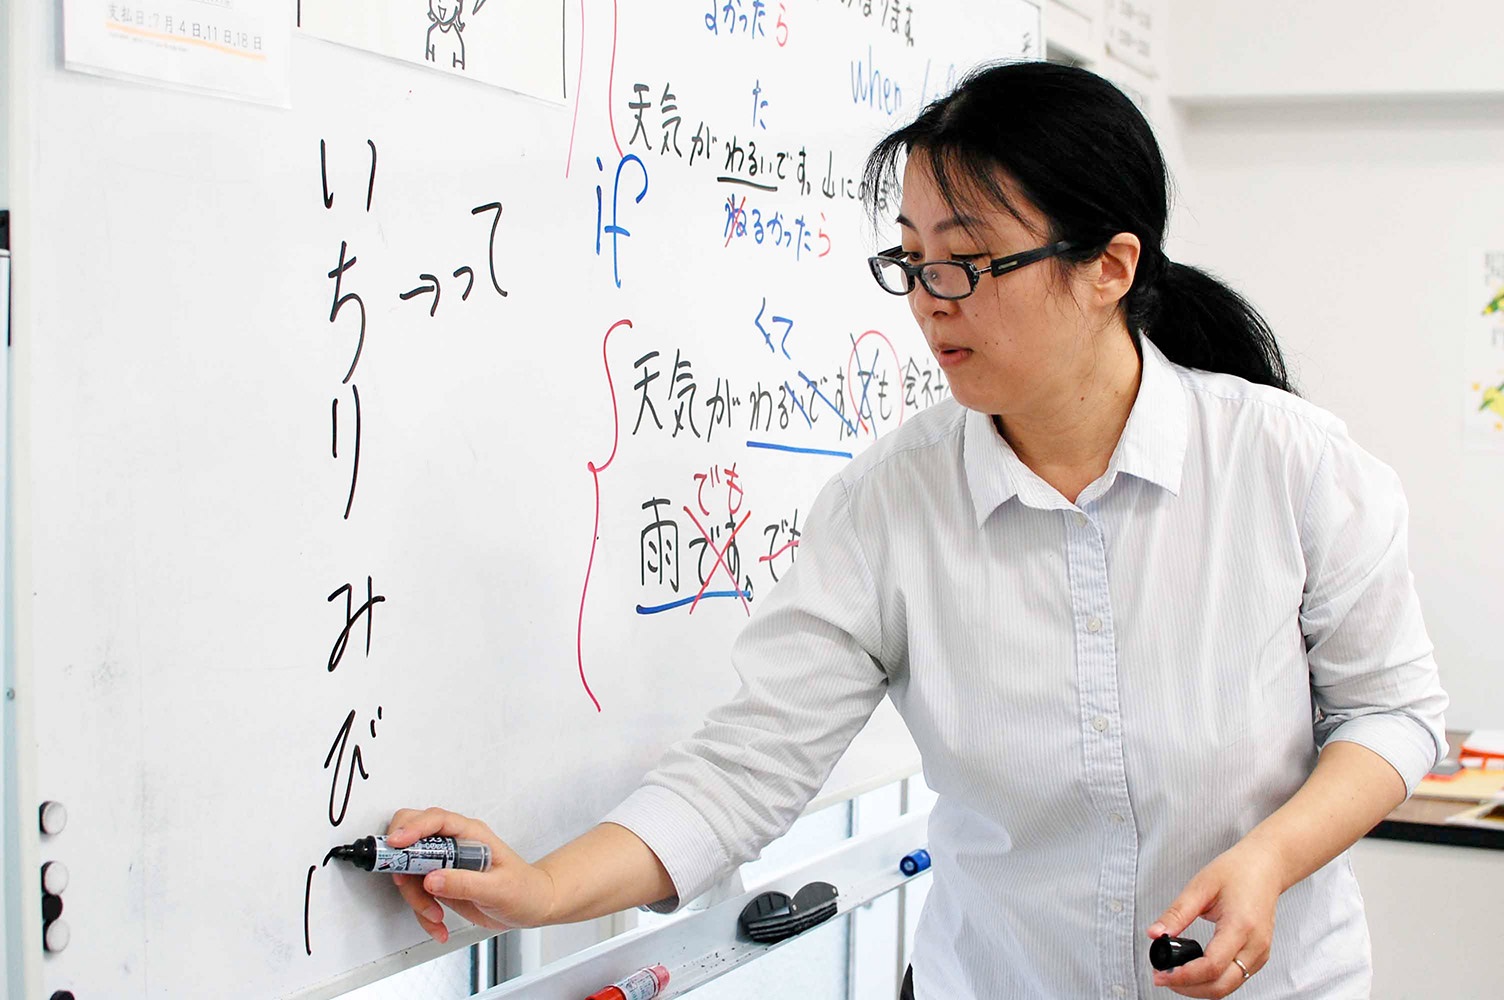 支払日:7月4日,11日,18日
い
ち
り
→って
み
び
よかったら
when
た
天気がわるいです。山に
わるかったら
if
くて
天気がわるいです。でも会社
でも
雨です。でも